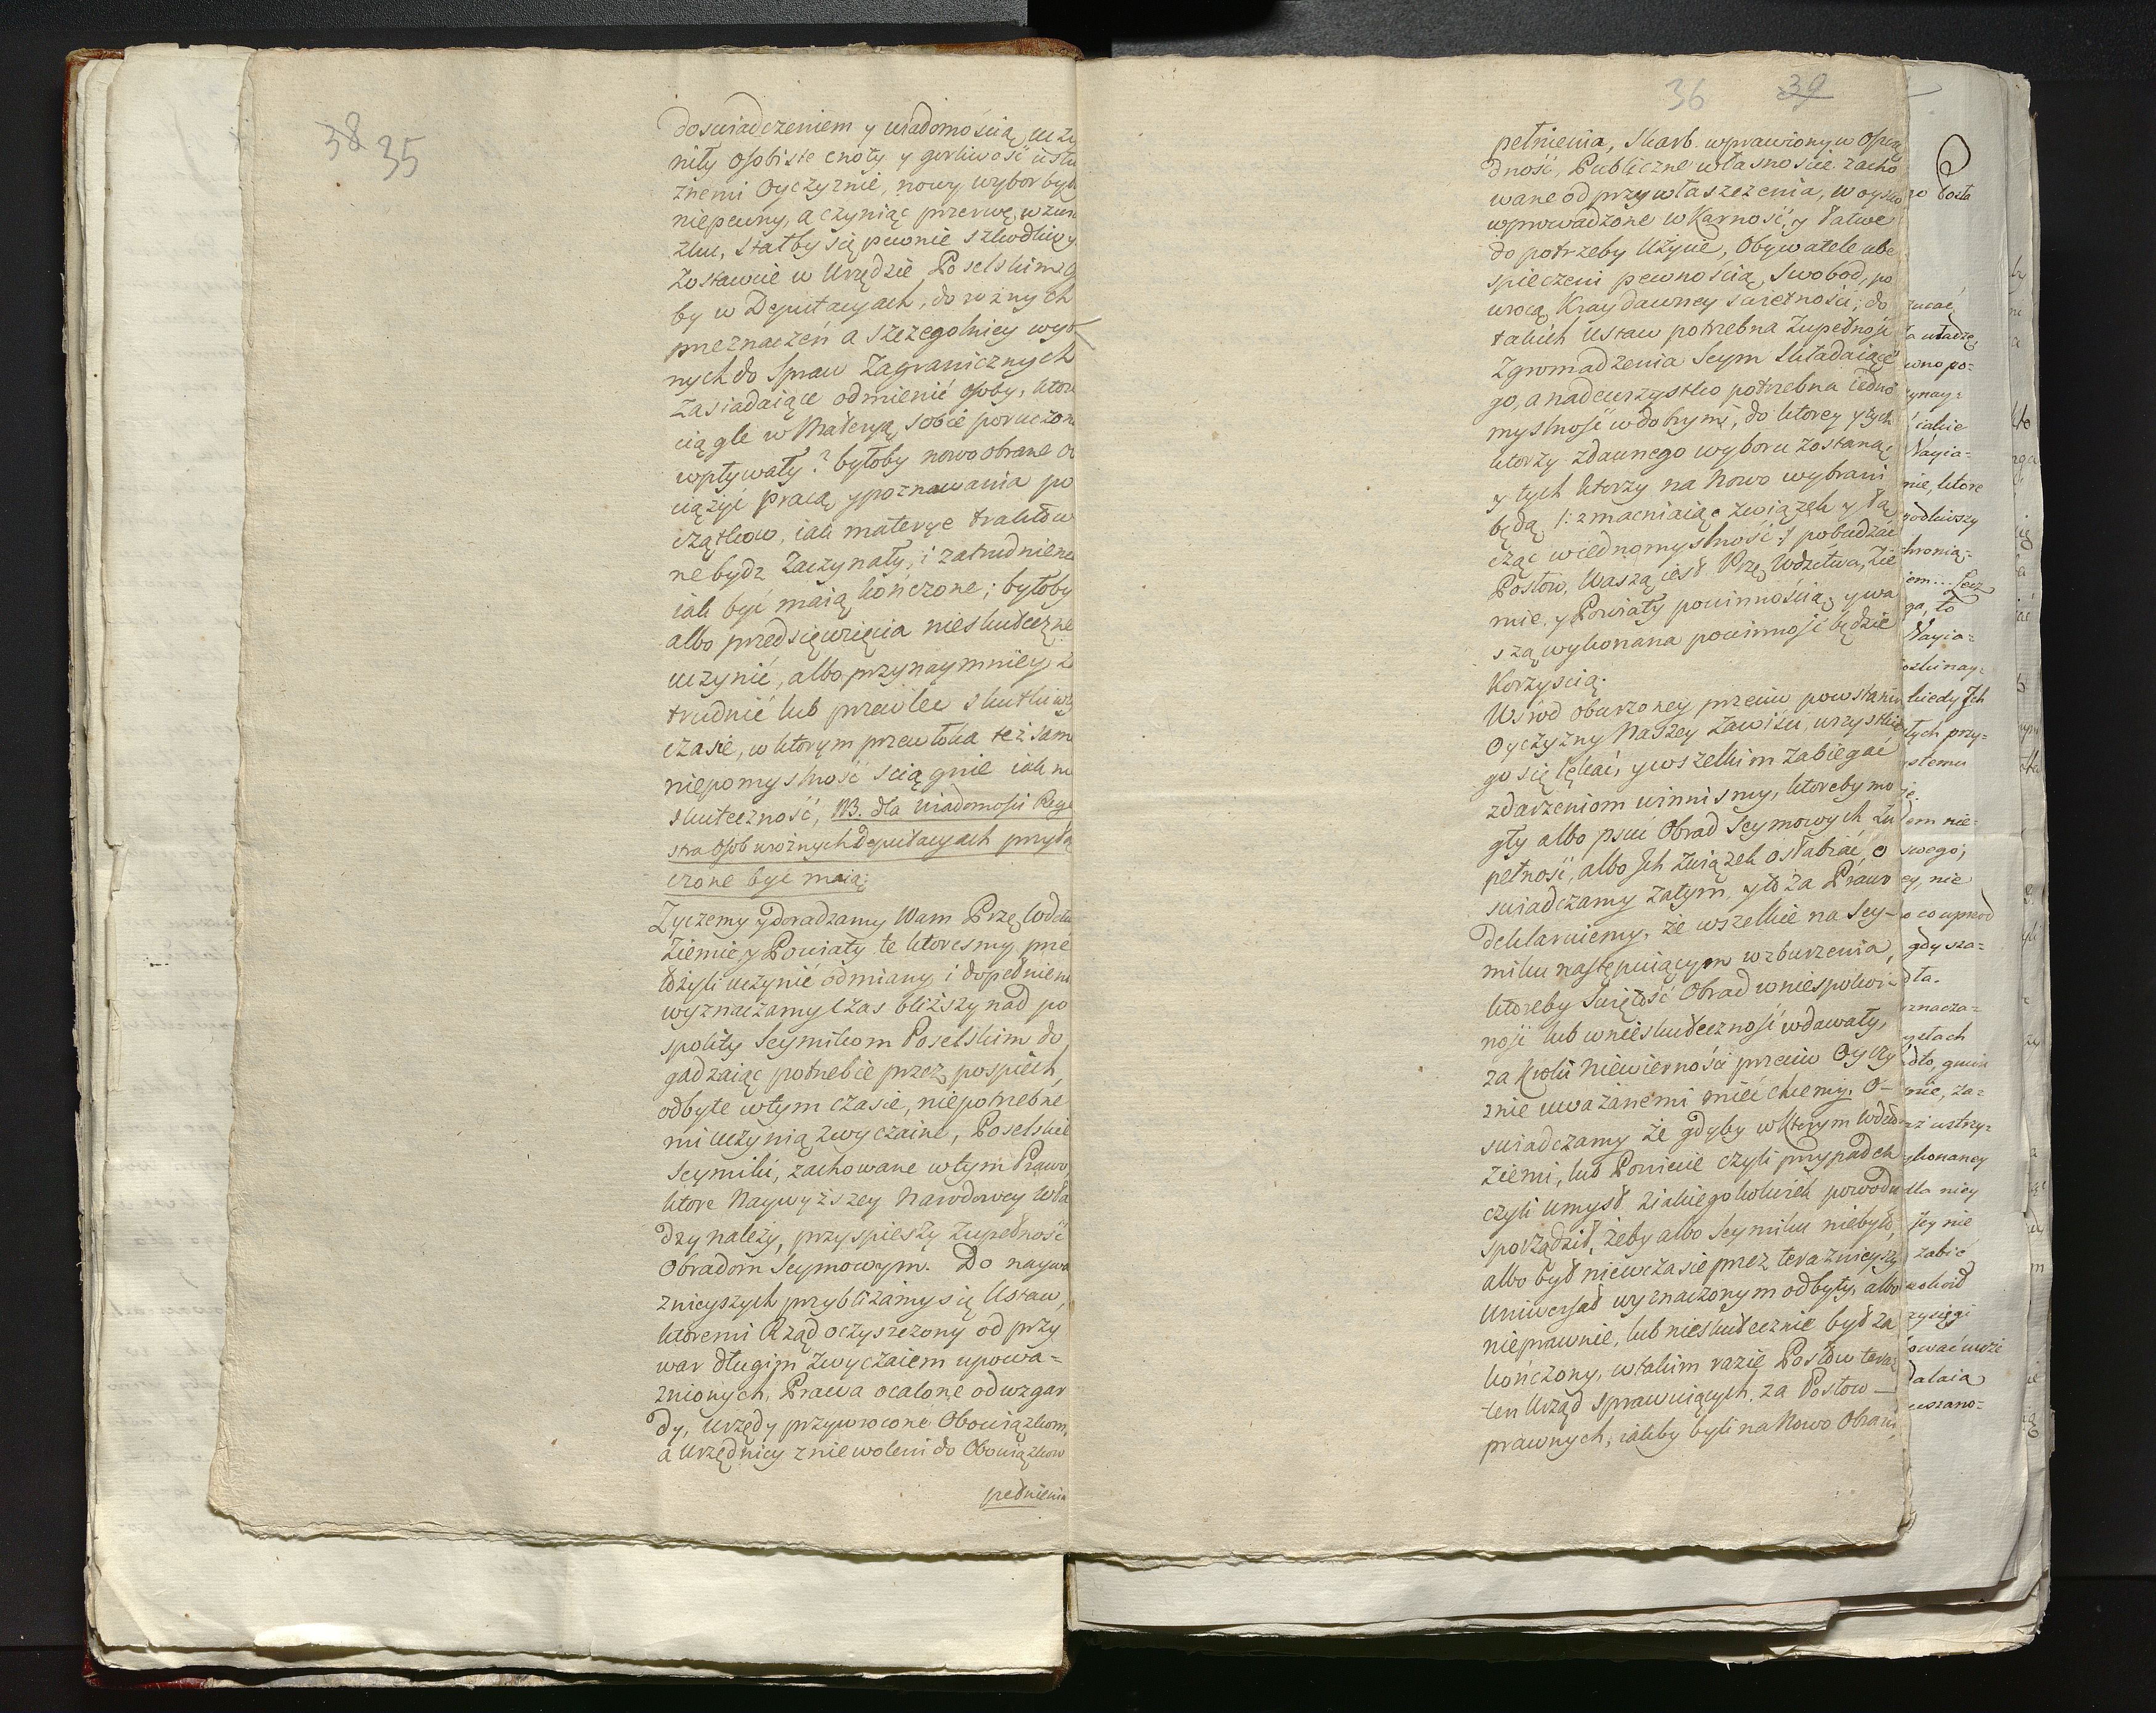 38 35
doswiadczeniem y wiadomością, uczy
niły osobiste cnoty y gorliwość usłu
żnemi Oyczyznie, nowy wybor był
niepewny, a czyniąc przerwę w zwią
zku, stałby się pewnie szkodliwy.
Zostawcie w Urzędzie Poselskim
by w Deputacyach, do rożnych
przeznaczeń a szczegolniey wyb
nych do Spraw Zagranicznych
zasiadaiące odmienić osoby, ktore
ciągle w Materyą sobie poruczoną
wpływały? byłoby nowo obrane ob
ciążyć pracą y poznawania po
czątkow, iak materye traktow
ne bydz zaczynały, i zatrudnienia
iak być maią kończone; byłoby
albo przedsięwzięcia nieskuteczne
uczynić, albo przynaymniey za
trudnić lub przewlec skutki w
czasie, w ktorym przewłoka też samą
niepomyslność sciągnie iak nie
skuteczność, NB. dla wiadomości Rege
stra Osob w rożnych Deputacyach przyłą
czone być maią:
Zyczemy y doradzamy Wam Prze. Wdztwa
Ziemie, y Powiaty te ktoresmy prze
łożyli uczynić odmiany i dopełnienia
wyznaczamy czas bliższy nad po
spolity Seymikom Poselskim do
gadzaiąc potrzebie przez pospiech
odbyte w tym czasie, niepotrzebne
mi uczynią zwyczaine, Poselskie
Seymiki, zachowane w tym Prawo,
ktore Naywyższey Narodowey Wła
dzy należy, przyspieszy zupełność
Obradom Seymowym. Do naywa
żnieyszych przybliżamy się Ustaw,
ktoremi Rząd oczyszczony od przy
war długim zwyczaiem upowa=
żnionych, Prawa ocalone od wzgar
dy, Urzędy przywrocone Obowiązkom,
a Urzędnicy zniewoleni do Obowiązkow
pełnienia
36 39
pełnienia, Skarb wprawiony w Oszczę
dność, Publiczne własnoscie zacho
wane od przywłaszczenia, Woysko
wprowadzone w Karność, y łatwe
do potrzeby Użycie, Obywatele ube
spieczeni pewnością Swobod, po
wrocą Kray dawney swietności; do
takich Ustaw potrzebna Zupełność
Zgromadzenia Seym składaiące
go, a nadewszystko potrzebna iedno
myslność w dobrymi, do ktorey y tych
ktorzy z dawnego wyboru zostaną,
y tych ktorzy na nowo wybrani
będą /: zmacniaiąc związek y łą
cząc w iednomyslność :/ pobudzać
Posłow, Waszą iest Prze. Wdztwa, Zie
mie, y Powiaty powinnością, y wa
szą wykonana powinność będzie
Korzyscią.
Wśrod oburzoney przeciw powstaniu
Oyczyzny Naszey zawisci, wszystkie
go się lękać, y wszelkim zabiegać
zdarzeniom winnismy, ktoreby mo
gły albo psuć Obrad Seymowych Zu
pełność, albo Ich Związek osłabiać, o
swiadczamy zatym, y to za Prawo
deklaruiemy, że wszelkie na Sey-
miku następuiącym wzburzenia,
ktoreby Swiętość Obrad w niespokoi-
ność lub w nieskuteczność wdawały,
za Krok niewierności przeciw Oyczy
znie uważanemi mieć chcemy. O-
swiadczamy że gdyby w ktorym Wdztwie
Ziemi, lub Powiecie czyli przypadek
czyli umysł z iakiegokolwiek powodu
sporządził, żeby albo Seymiku niebyło,
albo był niewczasie przez teraznieyszy
Uniwersał wyznaczonym odbyty, albo
nieprawnie, lub nieskutecznie był za
kończony, w takim razie Posłow teraz
ten Urząd sprawuiących, za Posłow —
prawnych, iakby byli na Nowo Obrani,